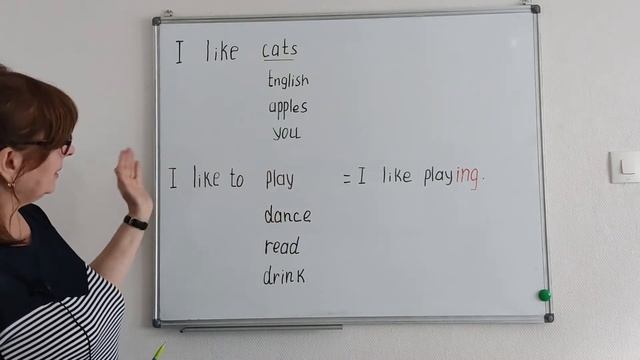 I like cats
English
apples
you
I like to play = I like playing.
dance
read
drink